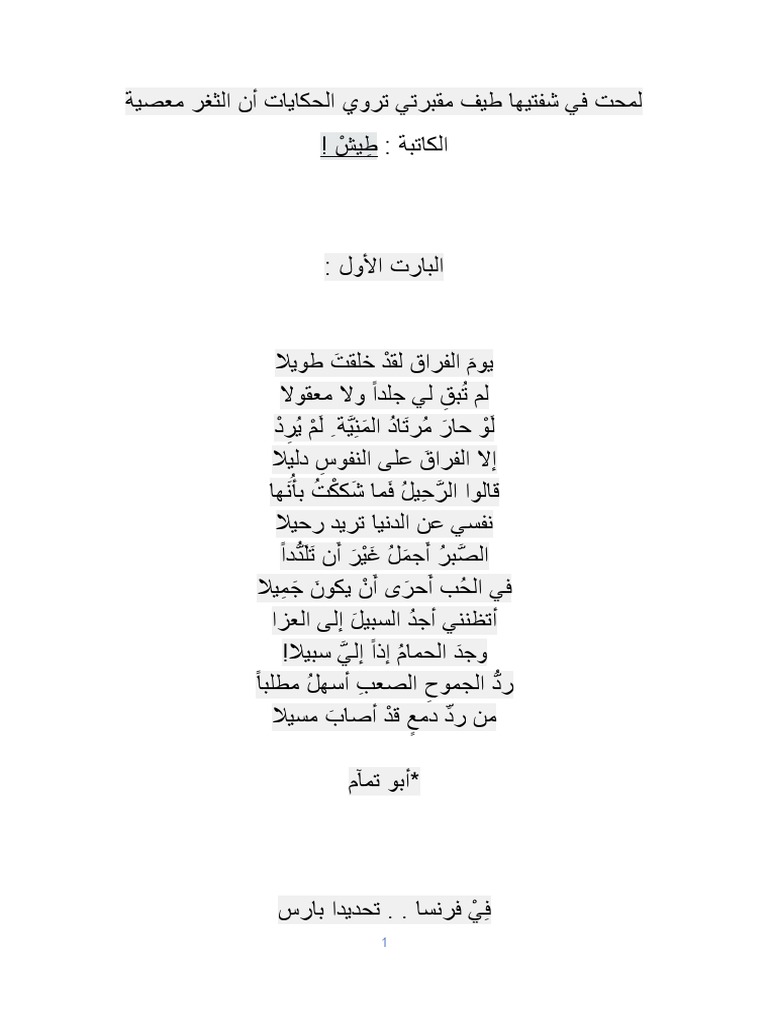 لمحت في شفتيها طيف مقبرتي تروي الحكايات أن الثغر معصية
الكاتبة : طِيشْ !
البارت الأول :
يومَ الفراق لقدْ خلقتَ طويلا
لم تُبقِ لي جلداً ولا معقولا
لَوْ حارَ مُرتَادُ المَنِيَّة ِ لَمْ يُرِدْ
إلا الفراقَ على النفوسِ دليلا
قالوا الرَّحِيلُ فَما شَككْتُ بأُنَها
نفسي عن الدنيا تريد رحيلا
الصَّبرُ أَجمَلُ غَيْرَ أَن تَلَدُّداً
في الحُب أَحرَى أَنْ يكونَ جَمِيلا
أتظنني أجدُ السبيلَ إلى العزا
وجدَ الحمامُ إذاً إليَّ سبيلا!
ردُّ الجموحِ الصعبِ أسهلُ مطلباً
من ردِّ دمعٍ قدْ أصابَ مسيلا
*أبو تمآم
فِيْ فرنسا . . تحديدا بارس
1